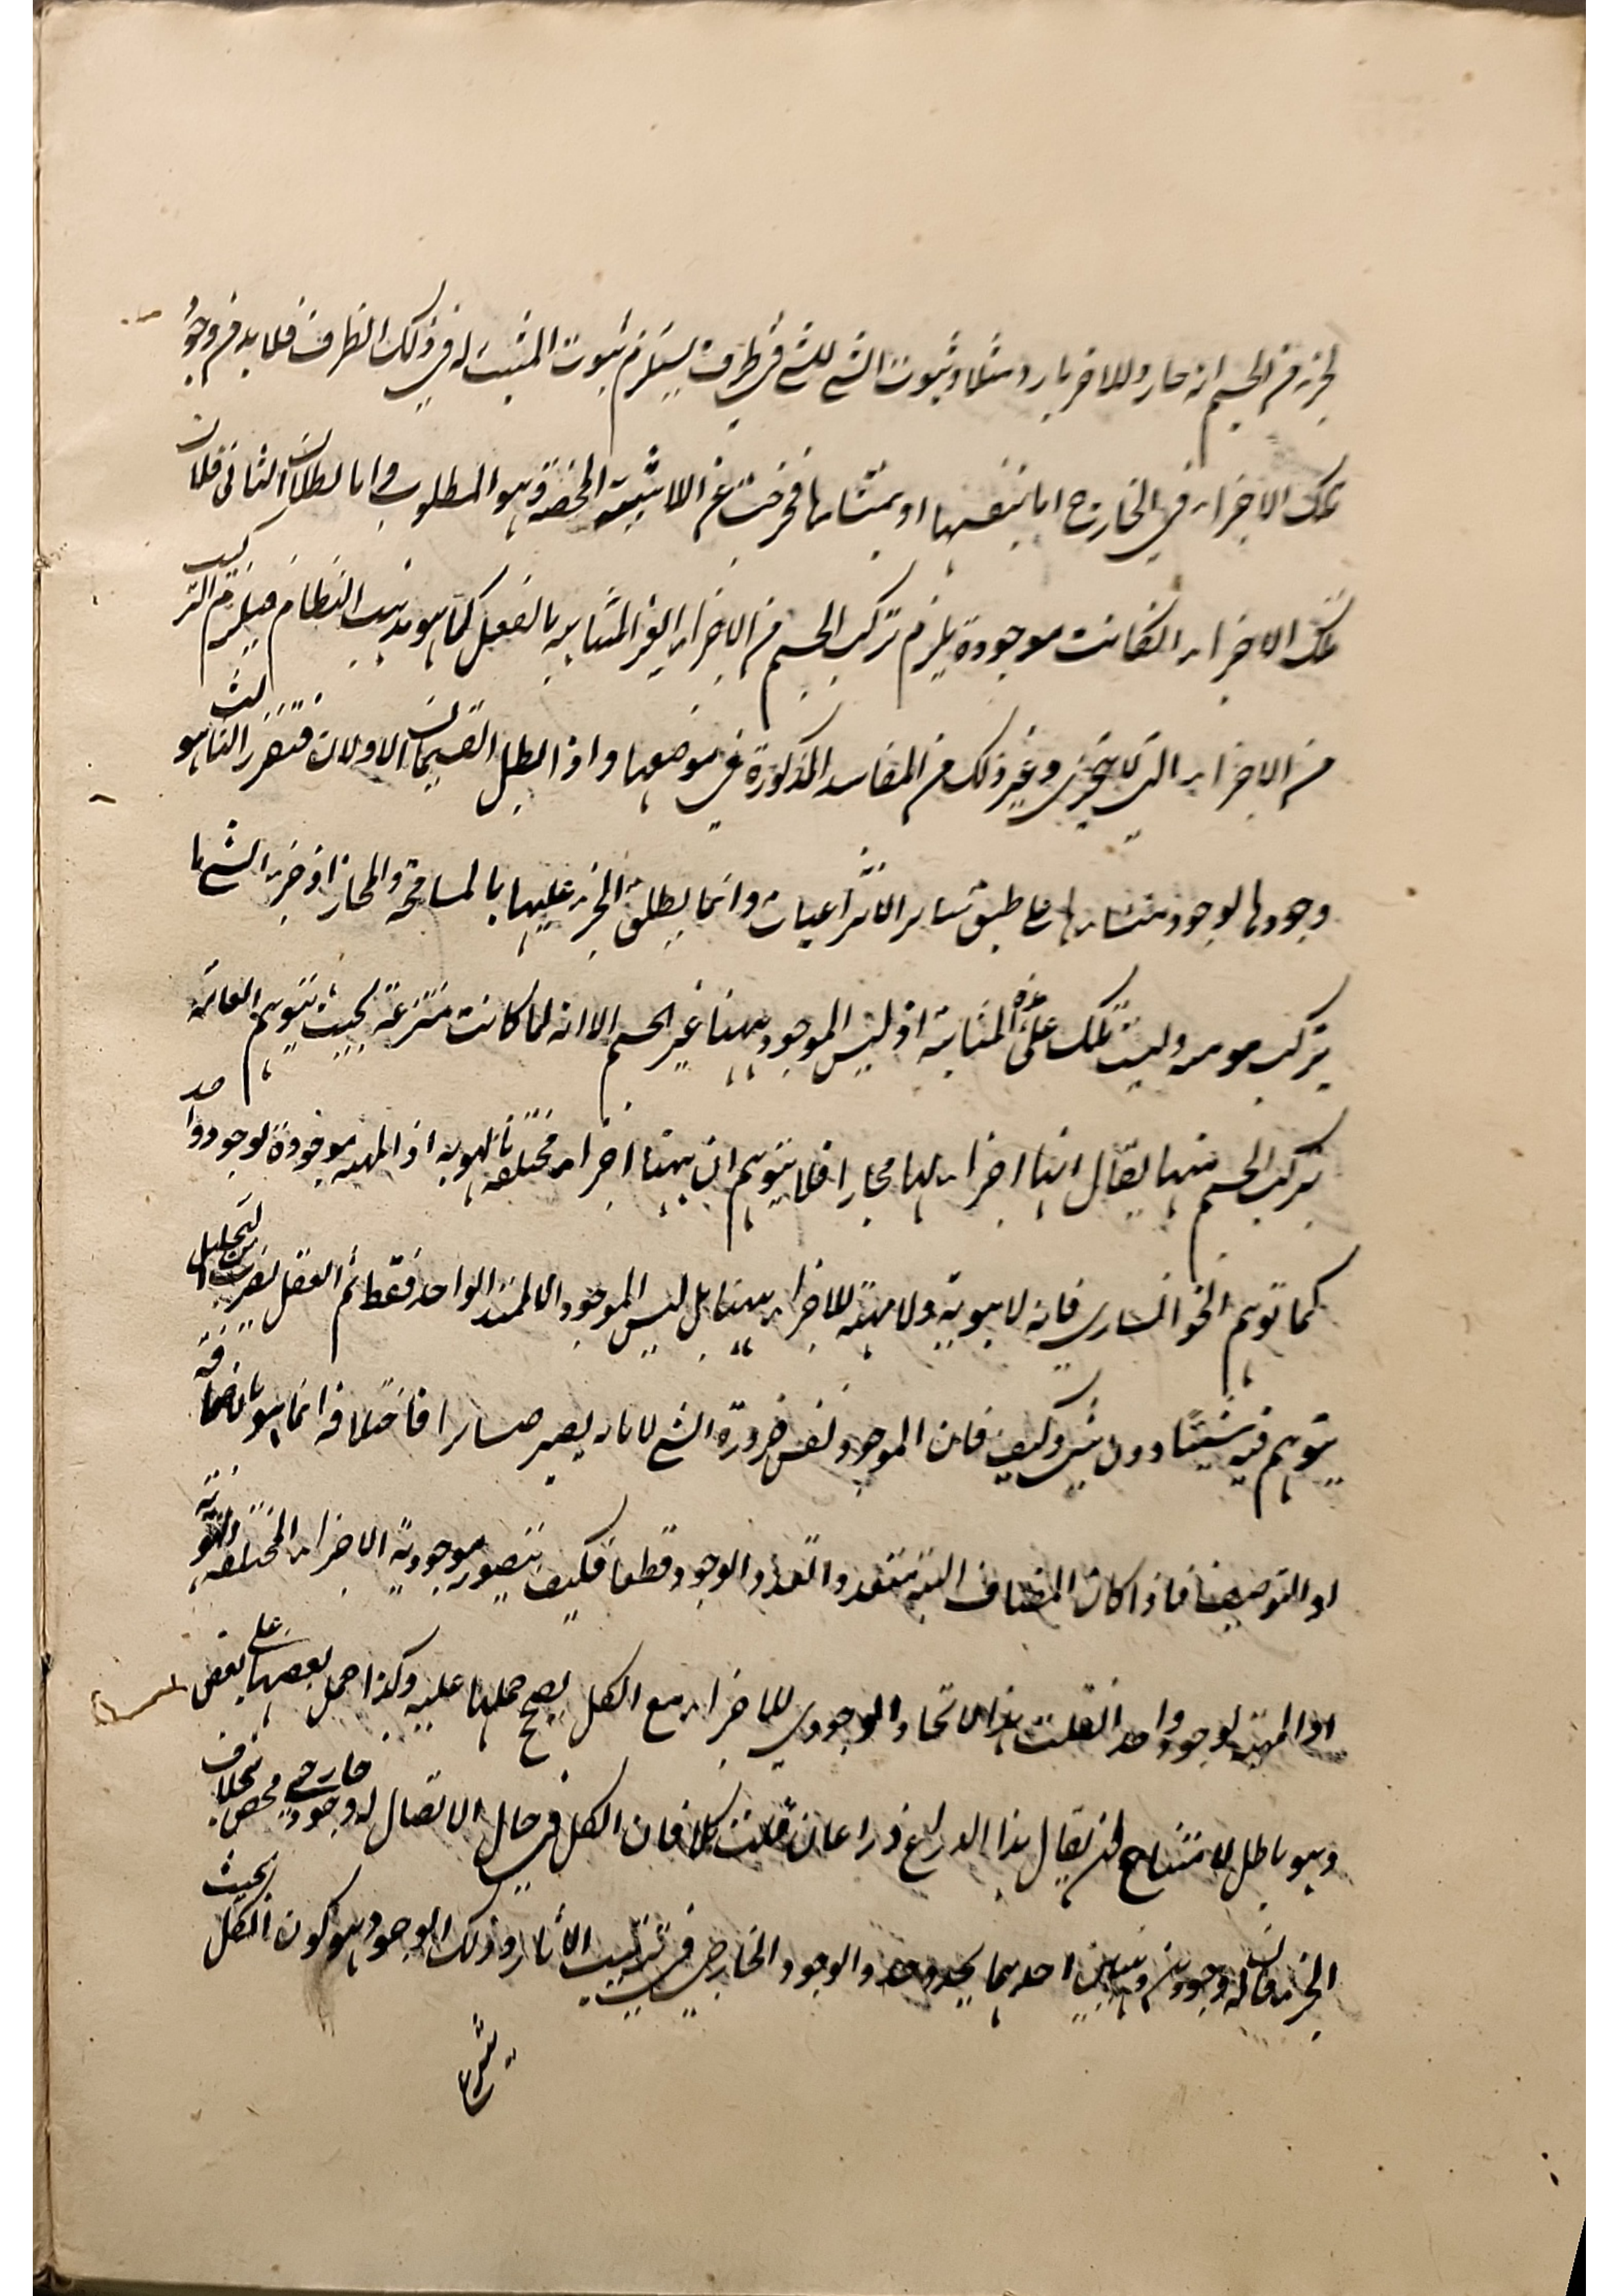 لجزء من الجسم انه حار وللاخر بارد مثلا وثبوت الشئ للشئ في ظرف يستلزم ثبوت المثبت له في ذلك الظرف فلا بد من وجود
تلك الاجزاء في الخارج اما بنفسها او بمنشاءها فخرجت عن اللاشيئية المحضة وهو المطلوب واما بطلان الثاني فلان
تلك الاجزاء لو كانت موجودة يلزم تركب الجسم من الاجزاء الغير المتناهية بالفعل كما هو مذهب النظام فيلزم التركيب
من الاجزاء التي لا تتجزى وغير ذلك من المفاسد المذكورة في موضعها واذا بطل القسمان الاولان فتقرر الثالث وهو
وجودها بوجود منشاءها على طبق سائر الانتزاعيات وانما يطلق الجزء عليها بالمسامحة والمجاز اذ جزء الشئ ما
يتركب هو منه وليست تلك على هذه المثابة اذ ليس الموجود ههنا غير الجسم الا انه لما كانت منتزعة بحيث يتوهم العامة
تركب الجسم منها يقال انها اجزاء لها مجازا فلا يتوهم ان ههنا اجزاء مختلفة بالهوية اذ المهية موجودة بوجود واحد
كما توهم الخوانساري فانه لا هوية ولا مهية للاجزاء ههنا بل ليس الموجود الا الممتد الواحد فقط ثم العقل بضرب من التحليل
يتوهم فيه شيئا دون شئ وكيف فان الموجود نفس ضرورة الشئ لا ما به يصير صائرا فاختلافه انما هو بالاضافة
او التوصيف فاذا كان المضاف اليه متعددا تعدد الوجود قطعا فكيف يتصور موجودية الاجزاء المختلفة بالهوية
او المهية بوجود واحد ان قلت هذا الاتحاد الوجودي للاجزاء مع الكل يصح حملها عليه وكذا حمل بعضها على بعض
وهو باطل لامتناع ان يقال هذا الذراع ذراعان قلت كلا فان الكل في حال الاتصال له وجود خارجي محض بخلاف
الجزء فان له وجودين وهميين احدهما يحذو حذو الوجود الخارجي في ترتيب الأثار وذلك الوجود هو كون الكل بحيث